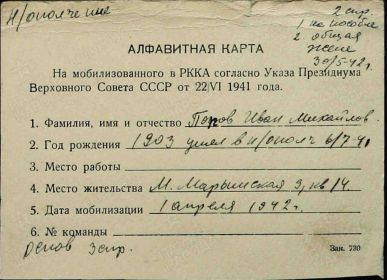 Н/ополчение
2 спр.
1. на пособие
2. общая
жене
30/5-42 г.
АЛФАВИТНАЯ КАРТА
На мобилизованного в РККА согласно Указа Президиума
Верховного Совета СССР от 22/VI 1941 года.
1. Фамилия, имя и отчество Попов Иван Михайлов.
2. Год рождения 1903 ушел в н/ополч 6/7-41
3. Место работы
4. Место жительства М. Марьинская 9, кв 14.
5. Дата мобилизации 1 апреля 1942 г.
6. № команды
спр.
Зак. 730